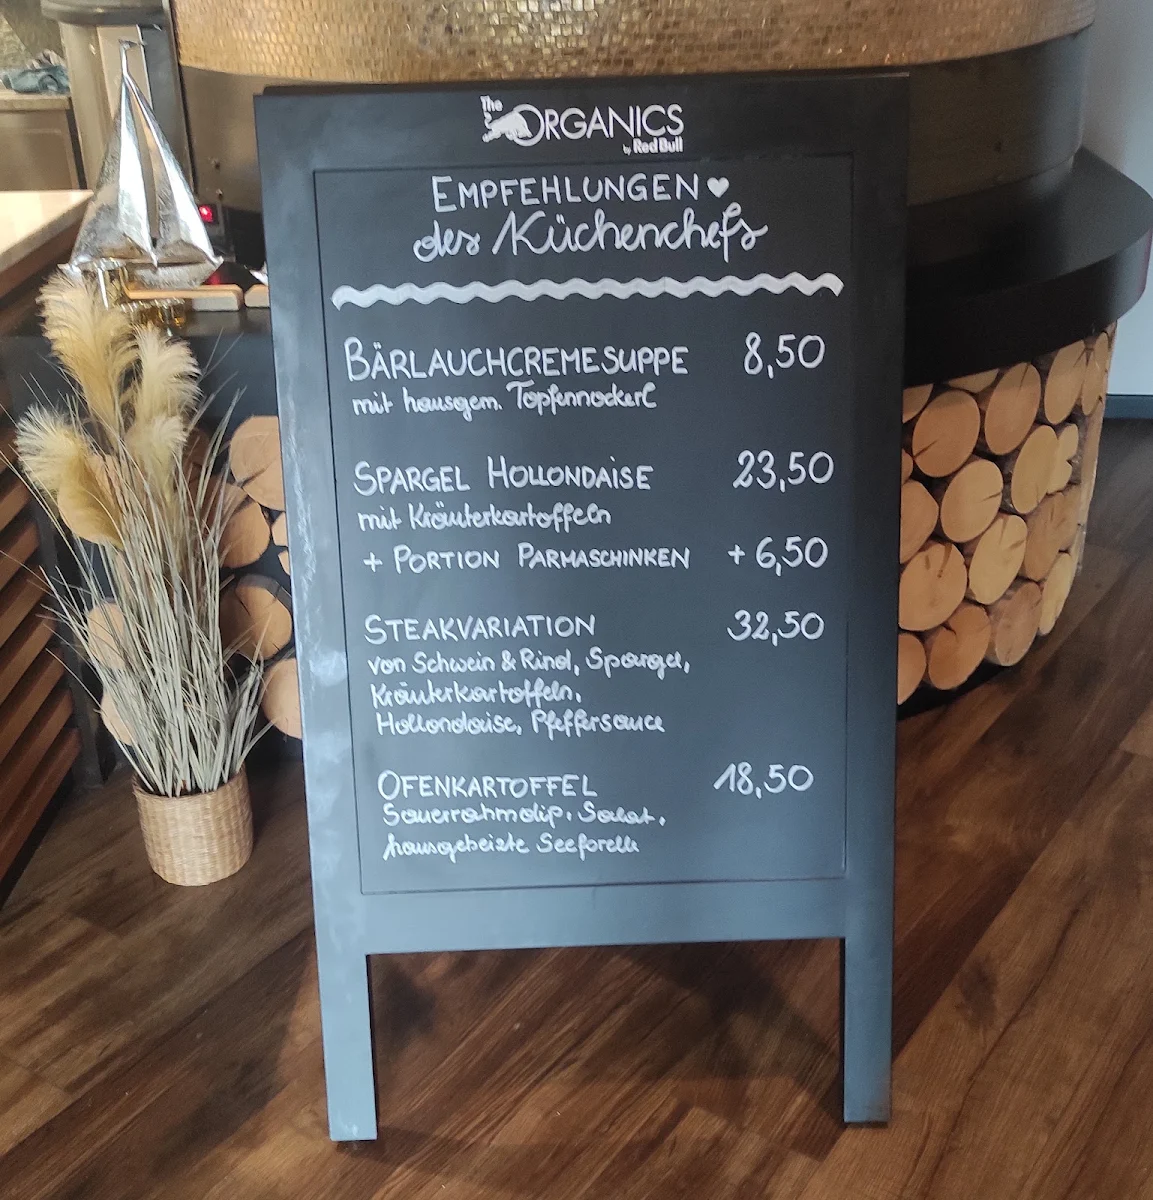 The ORGANICS
by Red Bull
EMPFEHLUNGEN ♥
des Küchenchefs
BÄRLAUCHCREMESUPPE 8,50
mit hausgem. Topfennockerl
SPARGEL HOLLONDAISE 23,50
mit Kräuterkartoffeln
+ PORTION PARMASCHINKEN + 6,50
STEAKVARIATION 32,50
von Schwein & Rind, Spargel,
Kräuterkartoffeln,
Hollondaise, Pfeffersauce
OFENKARTOFFEL 18,50
Sauerrahmdip, Salat,
hausgebeizte Seeforelle